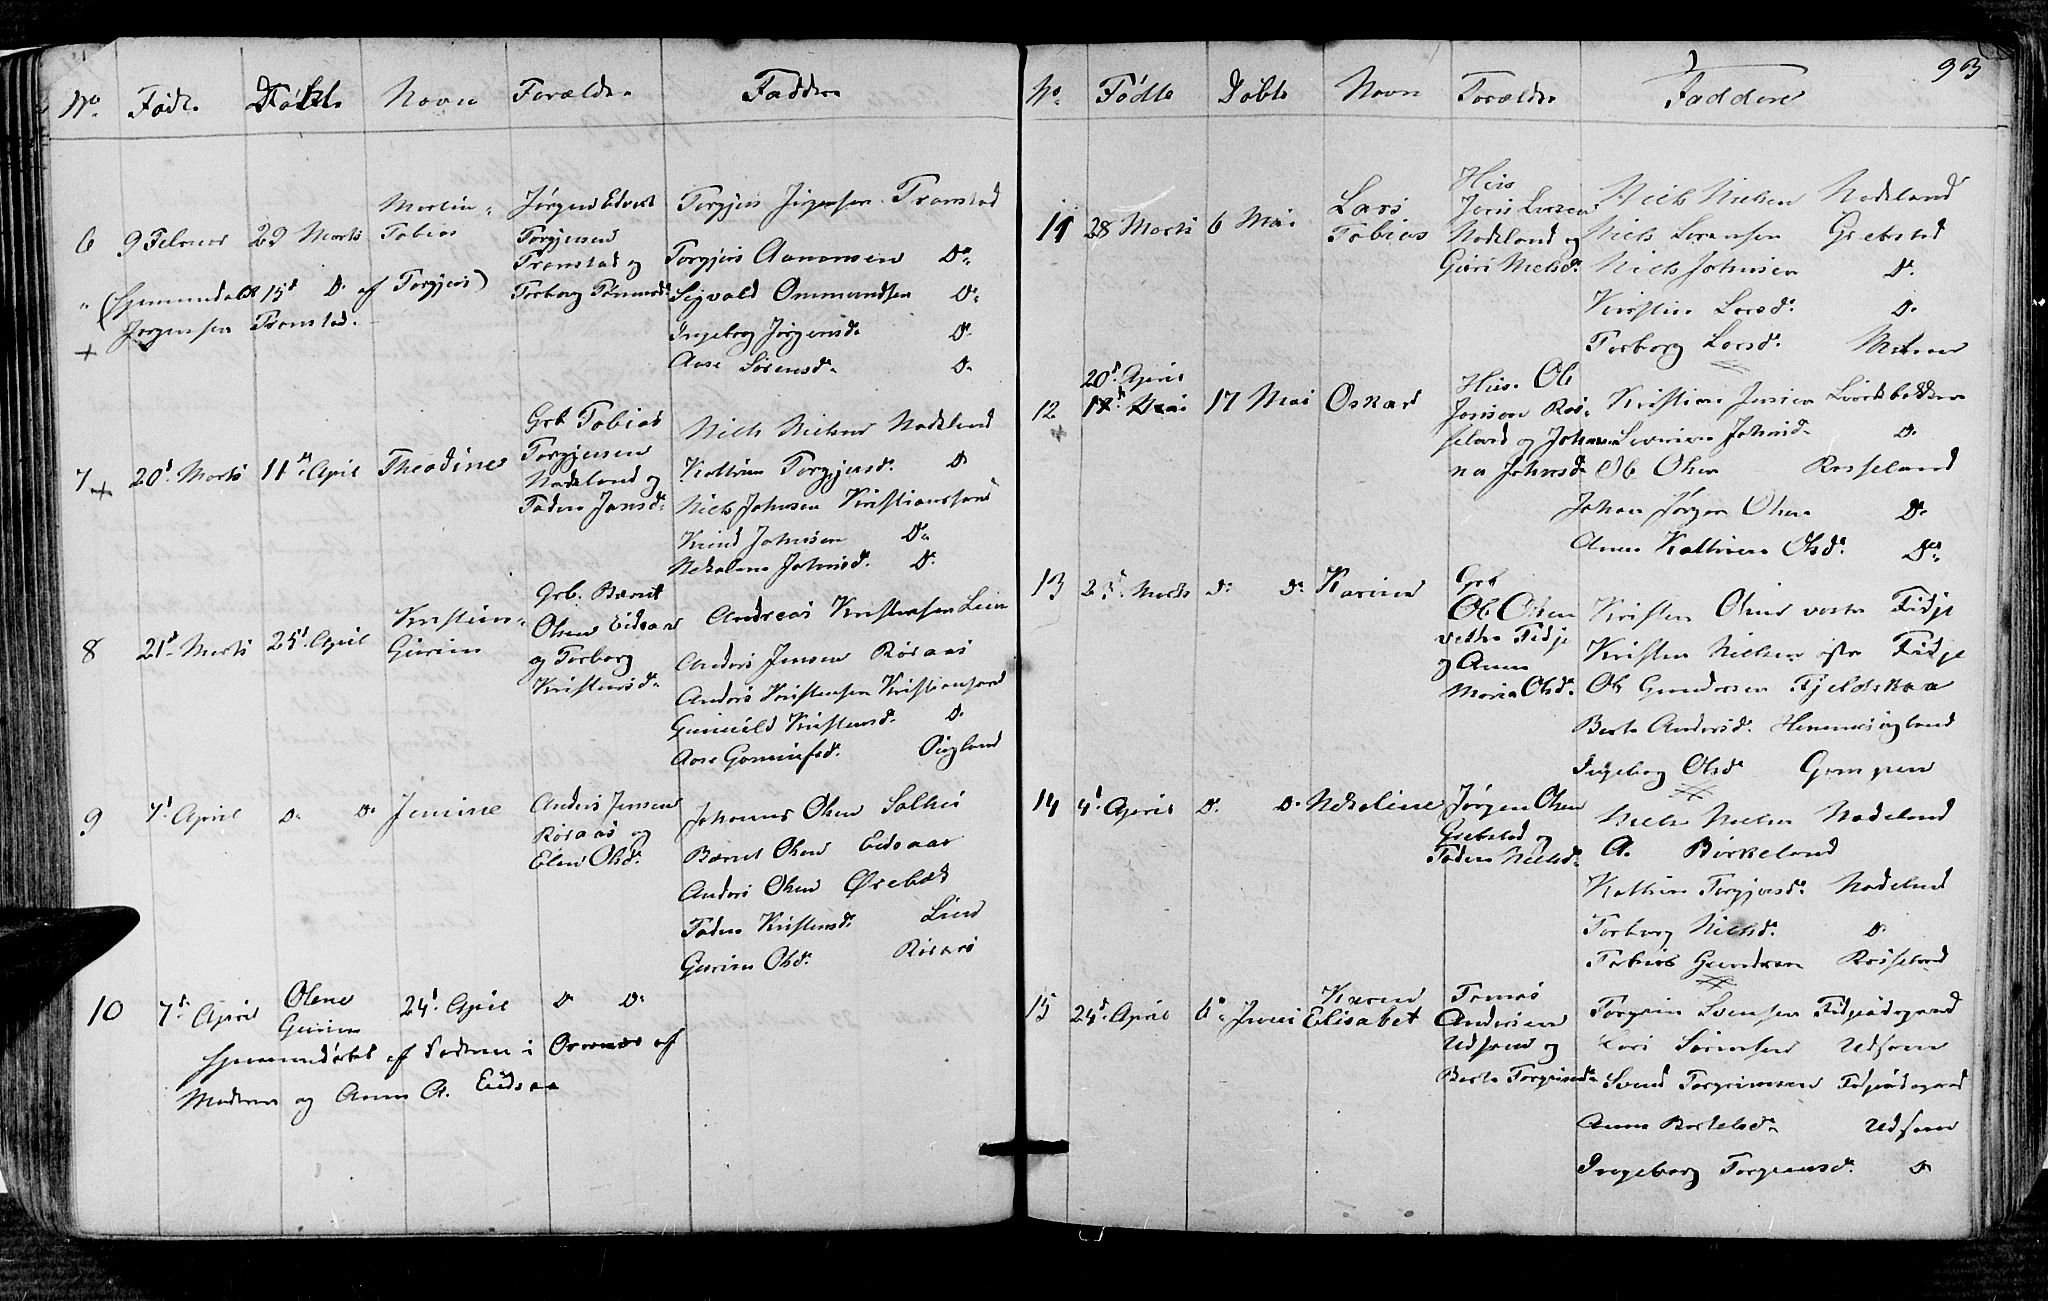 93
No. Føde. Døbt. Navn Forældre Faddere
6 9 Februar 29 Marts Martin- Tobias
Jørgen Edvart
Torgjersen
Tronstad og
Torborg Tømmersd.
Torgjers Jørgensen Tronstad
Torgjers Aanonsen Do.
Sigvald Ommundsen Do.
Ingeborg Jørgensd. D.
Aase Sörensd. D.
" (hjemmedøbt 15d D. af Torgjers)
Jørgensen Tronstad.
+
7 + 20d Marts 11te April Theodine
Grb Tobias
Torgjersen
Nodeland og
Taden Jansd.
Niels Nielsen Nodeland
Kathrine Torgjersd. D
Niels Johnsen Kristianssand
Knud Johnsen Do
Nekoline Johnsd. D.
8 21d Marts 25d April Kristine- Gurine
Grb. Bærnt
Olsen Eidsaa
og Torborg
Kristensd.
Andreas Kristensen Lien
Anders Jensen Røsaas
Anders Kristensen Kristiansand
Gunnild Kristensd. D.
Aase Gommefsd. Øigland
9 7d April D. D. Jemine
Anders Jensen
Røsaas og
Elen Olsd.
Johannes Olsen Solhei
Bærnt Olsen Eidsaae
Anders Olsen Ørebæk
Taden Kristensd. Lien
Gurine Olsd. Røsaas
10 7d April Olene Gurine 24d April D. D.
hjemmedøbt af Faderen i Overvær af
Moderen og Anne A. Eidsaa
No. Födte Døbte Navn Forældre Faddere
11 28 Marts 6 Mai Lars Tobias
Huus
Jens Larsen
Nodeland og
Guri Nielsd.
Niels Nielsen Nodeland
Niels Lorensen Grebstad
Niels Johnsen D.
Kirstine Larsd. D.
Torborg Larsd.
12 + 20d April 17d Mai 17 Mai Oskar
Huus. Ole
Jensen Ros-
seland og Johan-
na Johnsd.
Kristian Jensen
Severine Johnsd. D.
Ole Olsen Rosseland
Johan Jørgen Olsen D.
Anne Kathrine Olsd. Do.
13 25d Marts D. D. Karine
Grb
Ole Olsen
vestre Fidje
og Anne
Marie Olsd.
Kristen Olsen vestre Fidje
Kristen Nielsen østre Fidje
Ole Gundersen Fjeldskaa
Berte Andersd. Hemmesigland
Ingeborg Olsd. Grimpen
14 4d April D. D. Nekoline
Jørgen Olsen
Grebstad og
Taden Nielsd.
Niels Nielsen Nodeland
A. Birkeland
Kathrine Torgjersd. Nodeland
Torborg Nielsd. D.
Tobias Gundersen Rosseland
15 24d April 6te Juni Karen Elisabet
Tomas
Andersen
Udsven og
Berte Torgrimsd.
Torgrim Svensen Fidjeødegaard
Lars Sörensen Udsven
Svend Torgrimsen Fidjeødegaard
Anne Bertelsd. Udsven
Ingeborg Torgrimsd. D.